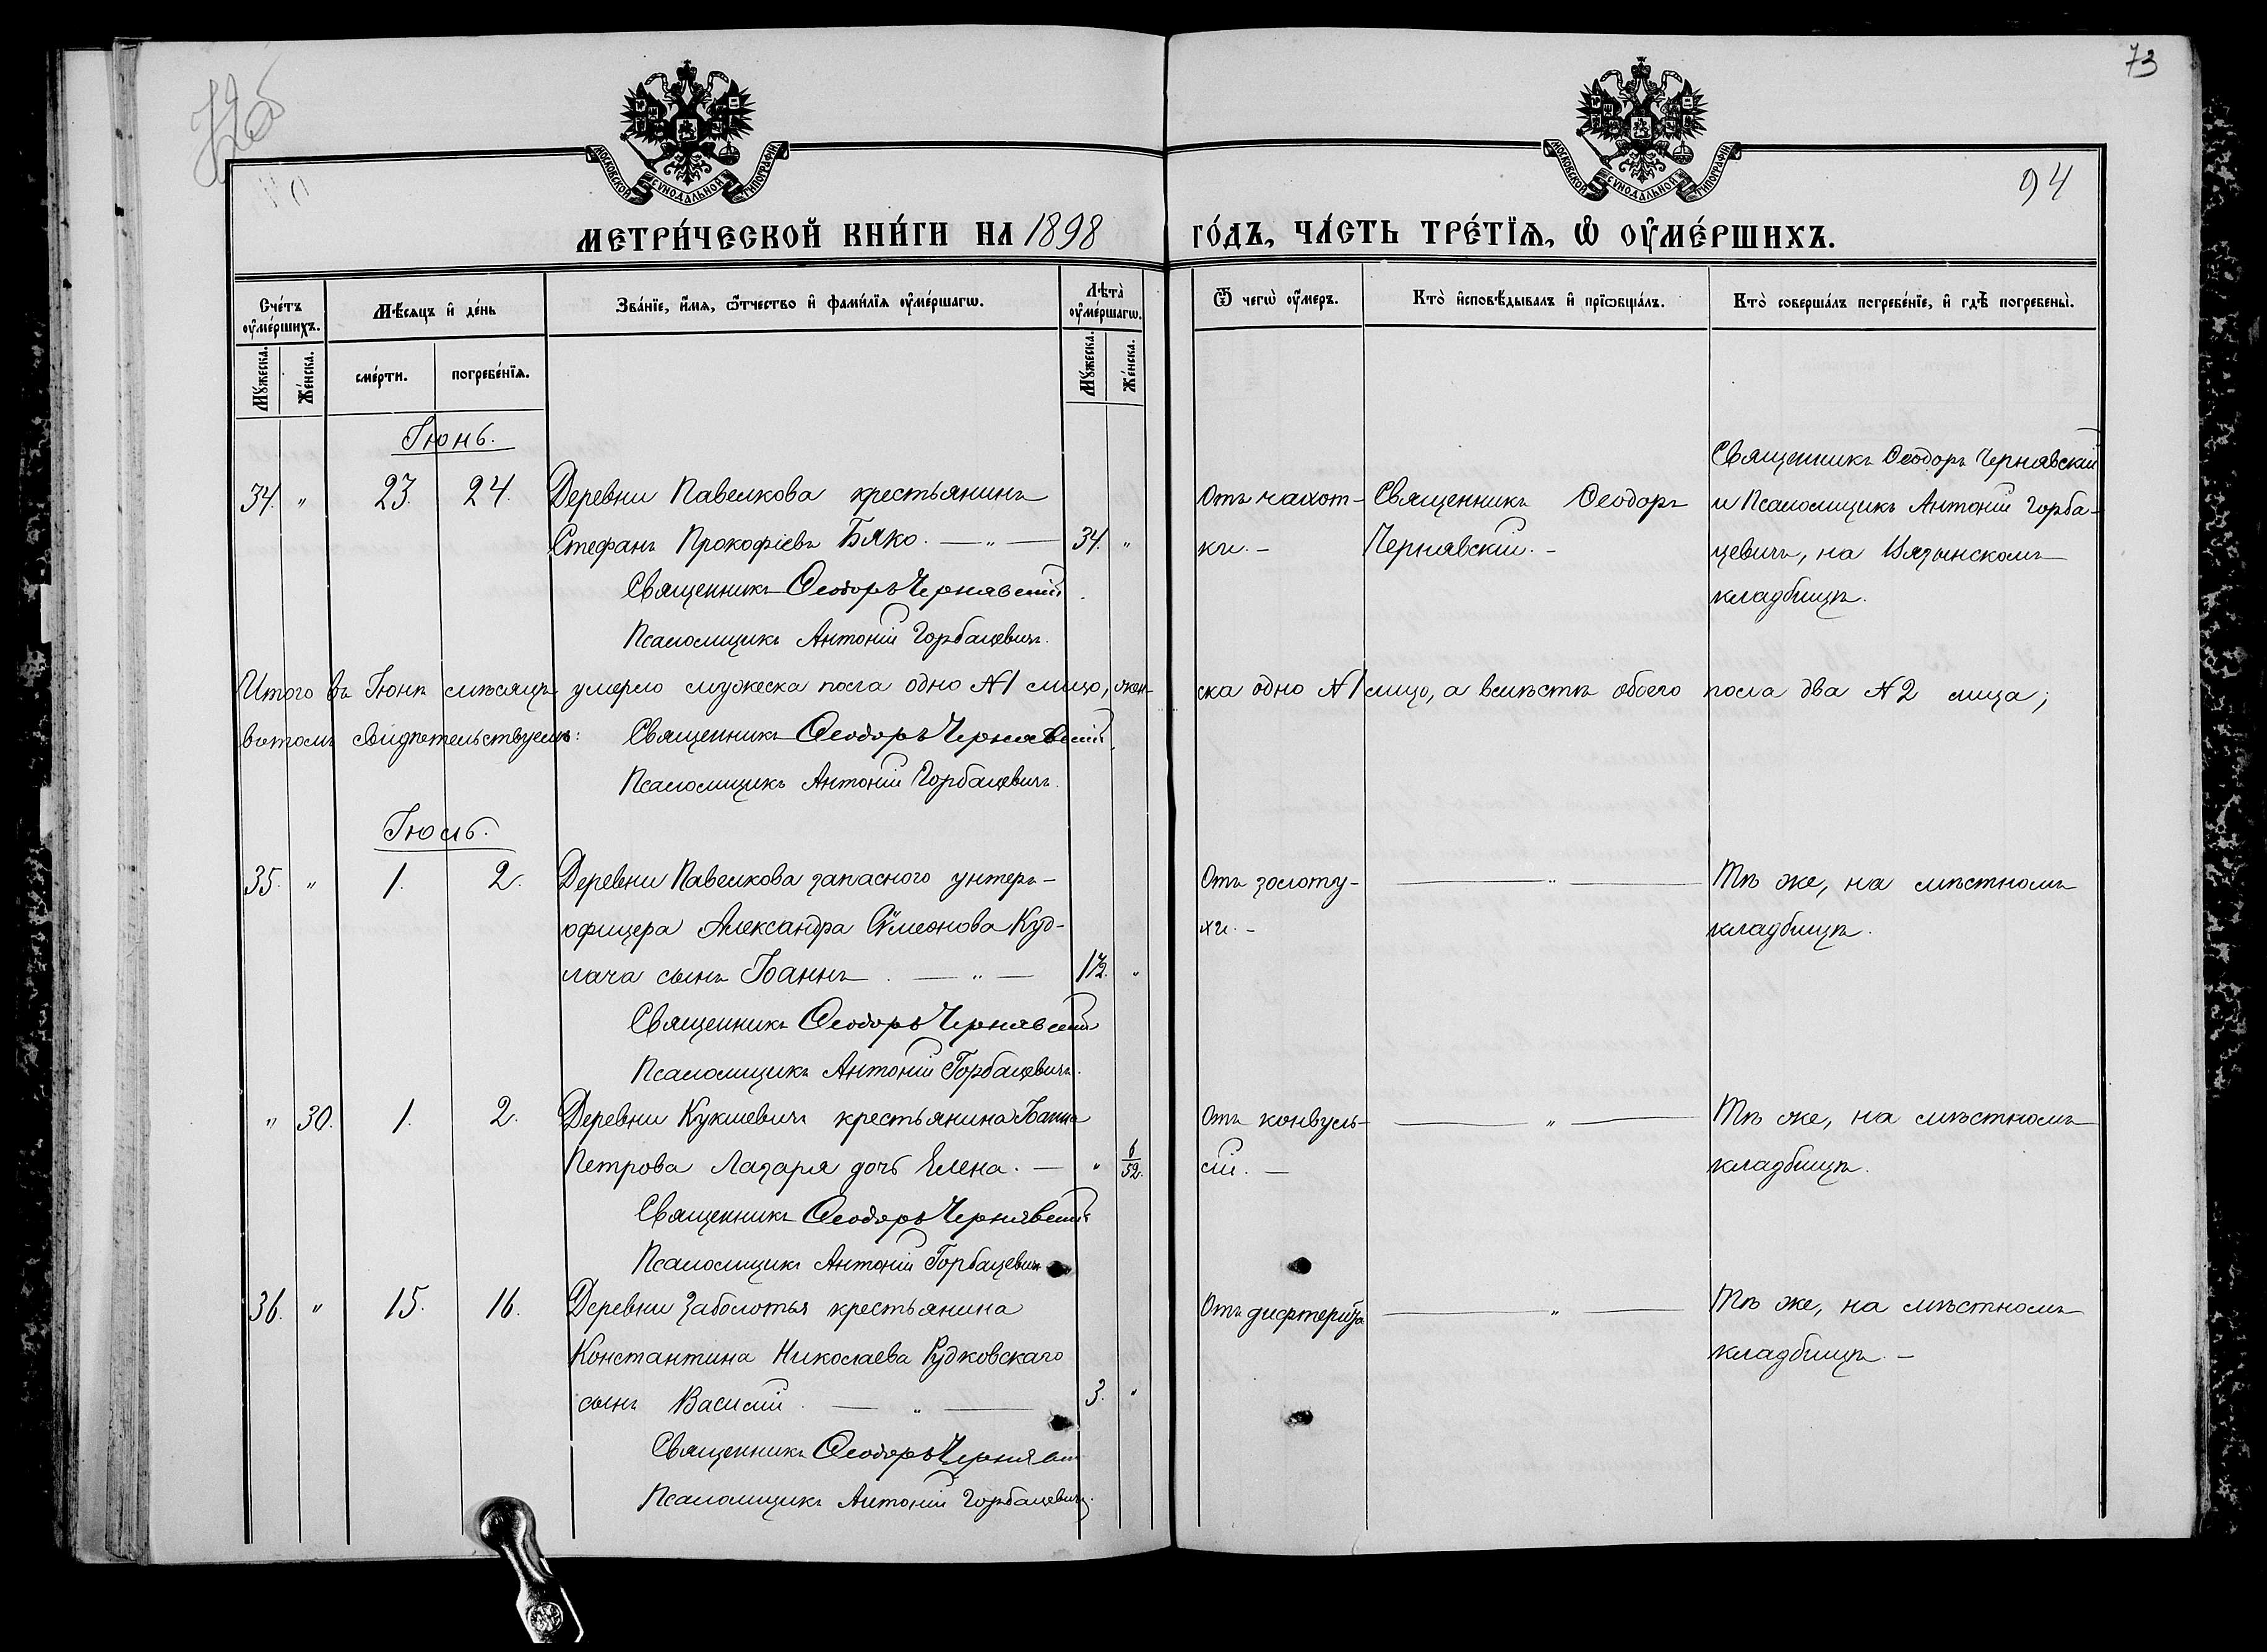 73
94
МОСКОВСКОЙ СѴНОДАЛЬНОЙ ТИПОГРАФІИ
МОСКОВСКОЙ СѴНОДАЛЬНОЙ ТИПОГРАФІИ
МЕТРИ́ЧЕСКОЙ КНИ́ГИ НА 1898 ГО́ДЪ, ЧА́СТЬ ТРЕ́ТЇѦ, Ѡ҆ ОУ҆МЕ́РШИХЪ.
Сче́тъ оу҆ме́ршихъ.
Мꙋ́жеска.
Же́нска.
Мѣ́сѧцъ и҆ де́нь
сме́рти.
погребе́нїѧ.
Зва́нїе, и҆́мѧ, ѻ҆́тчество и҆ фами́лїѧ оу҆ме́ршагѡ.
Лѣта̀ оу҆ме́ршагѡ.
Мꙋ́жеска.
Же́нска.
Ѿ чегѡ̀ оу҆́меръ.
Кто̀ и҆сповѣ́дывалъ и҆ прїѡбща́лъ.
Кто̀ соверша́лъ погребе́нїе, и҆ гдѣ̀ погребены̀.
Іюнь.
34. " 23. 24. Деревни Павелкова крестьянинъ
Стефанъ Прокофіевъ Бяко. — " — 34. "
Священникъ Ѳеодоръ Чернявскій
Псаломщикъ Антоній Горбацевичъ.
Отъ чахот-
ки. -
Священникъ Ѳеодоръ
Чернявскій. -
Священникъ Ѳеодоръ Чернявскій
и Псаломщикъ Антоній Горба-
цевичъ, на
кладбищѣ.
Итого въ Іюнѣ мѣсяцѣ умерло мужеска пола одно №1 лицо, жен-
ска одно №1 лицо, а вмѣстѣ обоего пола два №2 лица;
въ томъ свидѣтельствуемъ: Священникъ Ѳеодоръ Чернявскій
Псаломщикъ Антоній Горбацевичъ.
Іюль.
35. " 1. 2. Деревни Павелкова запаснаго унтеръ-
офицера Александра Сѵмеонова Куд-
лача сынъ Іоаннъ. — " —
Священникъ Ѳеодоръ Чернявскій
Псаломщикъ Антоній Горбацевичъ.
Отъ золоту-
хи. -
— " —
Тѣ же, на мѣстномъ
кладбищѣ.
" 30. 1. 2. Деревни Кукшевичъ крестьянина Іоанна
Петрова Лазаря дочь Елена. — " 6/52.
Священникъ Ѳеодоръ Чернявскій
Псаломщикъ Антоній Горбацевичъ
Отъ конвуль-
сіи. —
— " —
Тѣ же, на мѣстномъ
кладбищѣ.
36. " 15. 16. Деревни Заболотья крестьянина
Константина Николаева Рудковскаго
сынъ Василій. — " — 3. "
Священникъ Ѳеодоръ Чернявскій
Псаломщикъ Антоній Горбацевичъ.
Отъ дифтерита
— " —
Тѣ же, на мѣстномъ
кладбищѣ. —